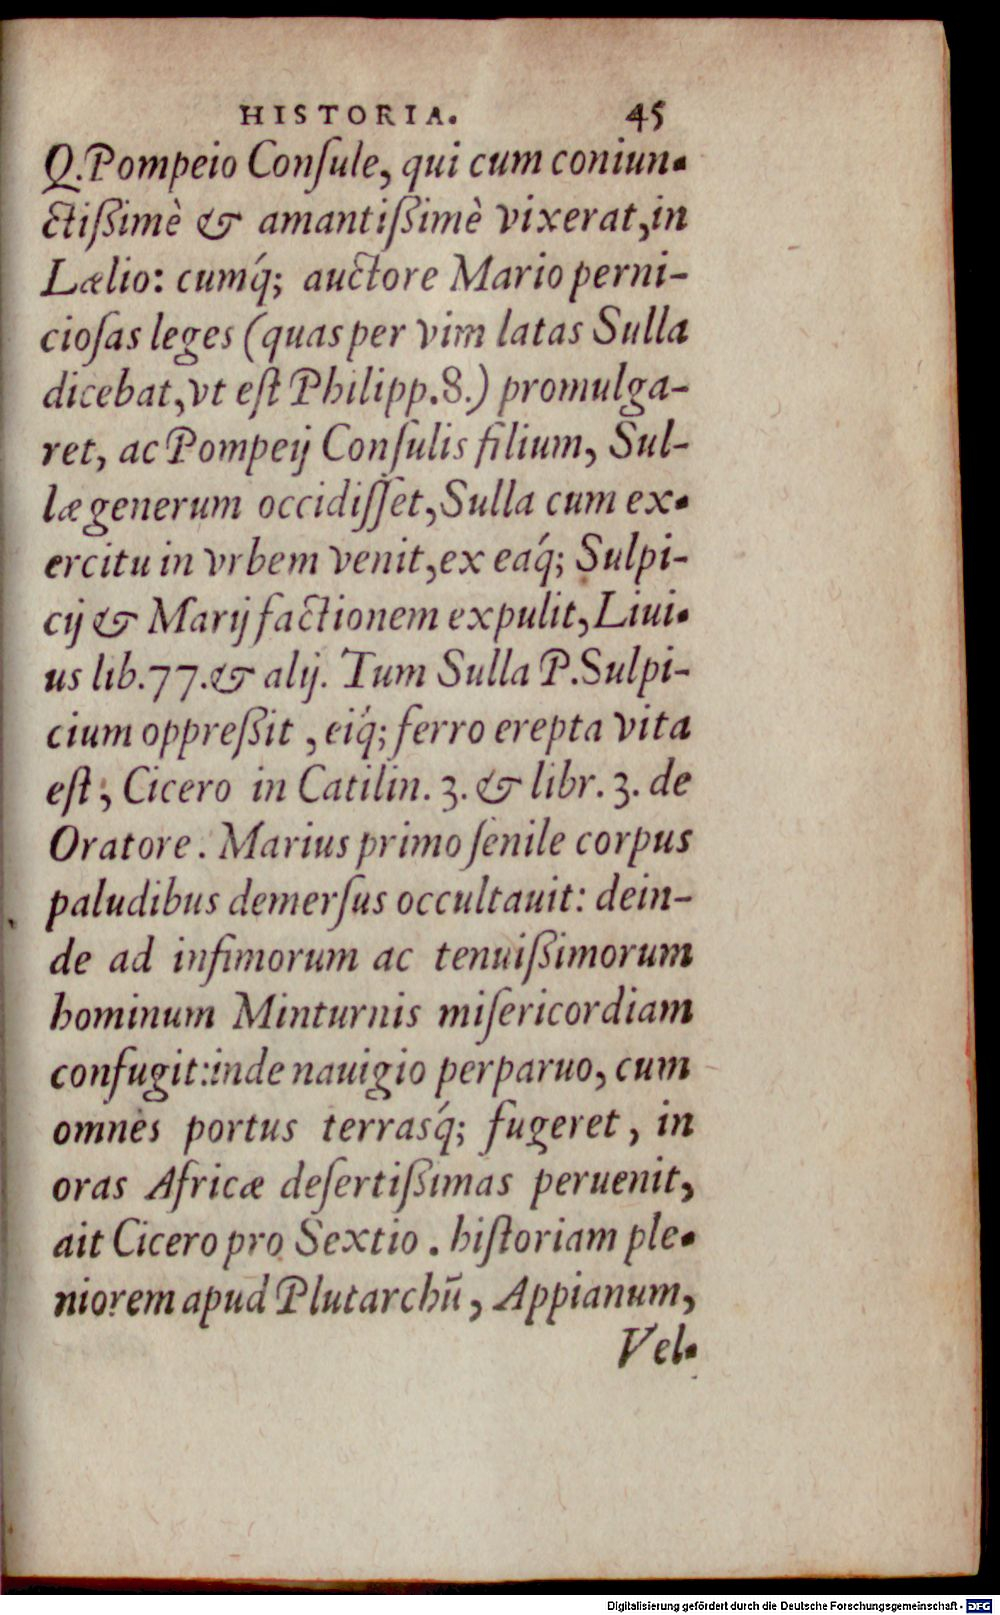 HISTORIA. 45
Q. Pompeio Conſule, qui cum coniun-
ctiſſimè & amantiſſimè vixerat, in
Lælio: cumq́; auctore Mario perni-
cioſas leges (quas per vim latas Sulla
dicebat, vt eſt Philipp. 8.) promulga-
ret, ac Pompeij Conſulis filium, Sul-
læ generum occidiſſet, Sulla cum ex-
ercitu in vrbem venit, ex eaq́; Sulpi-
cij & Marij factionem expulit, Liui-
us lib. 77. & alij. Tum Sulla P. Sulpi-
cium oppreſſit, eiq́; ferro erepta vita
eſt, Cicero in Catilin. 3. & libr. 3. de
Oratore. Marius primo ſenile corpus
paludibus demerſus occultauit: dein-
de ad infimorum ac tenuiſſimorum
hominum Minturnis miſericordiam
confugit: inde nauigio perparuo, cum
omnes portus terrasq́; fugeret, in
oras Africæ deſertiſſimas peruenit,
ait Cicero pro Sextio. hiſtoriam ple-
niorem apud Plutarchū, Appianum,
Vel-
Digitalisierung gefördert durch die Deutsche Forschungsgemeinschaft - DFG